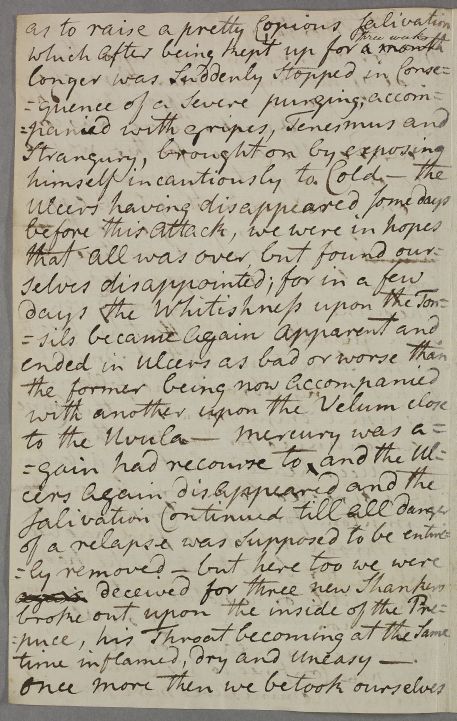 as to raise a pretty Copious Salivation
which after being kept up for a month three weeks
longer was Suddenly Stopped in Conse-
=quence of a Severe purging, accom=
=panied with gripes, Tenesmus and
Strangury, brought on by exposing
himself incautiously to Cold – the
Ulcers having disappeared some days
before this attack, we were in hopes
that all was over, but found our-
selves disappointed; for in a few
days the Whitishness upon the Ton-
=sils became again apparent and
ended in Ulcers as bad or worse than
the former being now accompanied
with another upon the Velum close
to the Uvula — mercury was a=
=gain had recourse to, and the Ul-
cers again disappeared and the
Salivation Continued till all danger
of a relapse was supposed to be entire-
=ly removed – but here too we were
deceived for three new Shankers
broke out upon the inside of the Pre-
=puce, his Throat becoming at the Same
time inflamed, dry and uneasy —
Once more then we betook ourselves